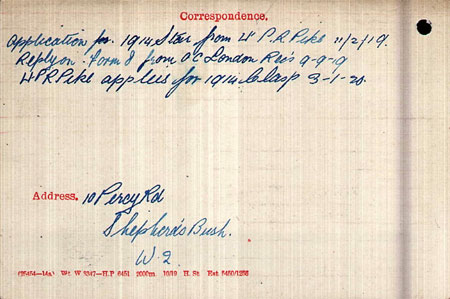 Correspondence.
Application for 1914 Star from Lt P.R. Pike 11/2/19.
Reply on Form 8 from OC London Rec's 9-9-19
Lt PR Pike applies for 1914 Clasp 3-1-20.
Address. 10 Percy Rd
Shepherds Bush.
W. 2.
(25454—14a) Wt W 5347—H.P 6451 2000m 10/19 H. St Est 6450/1256